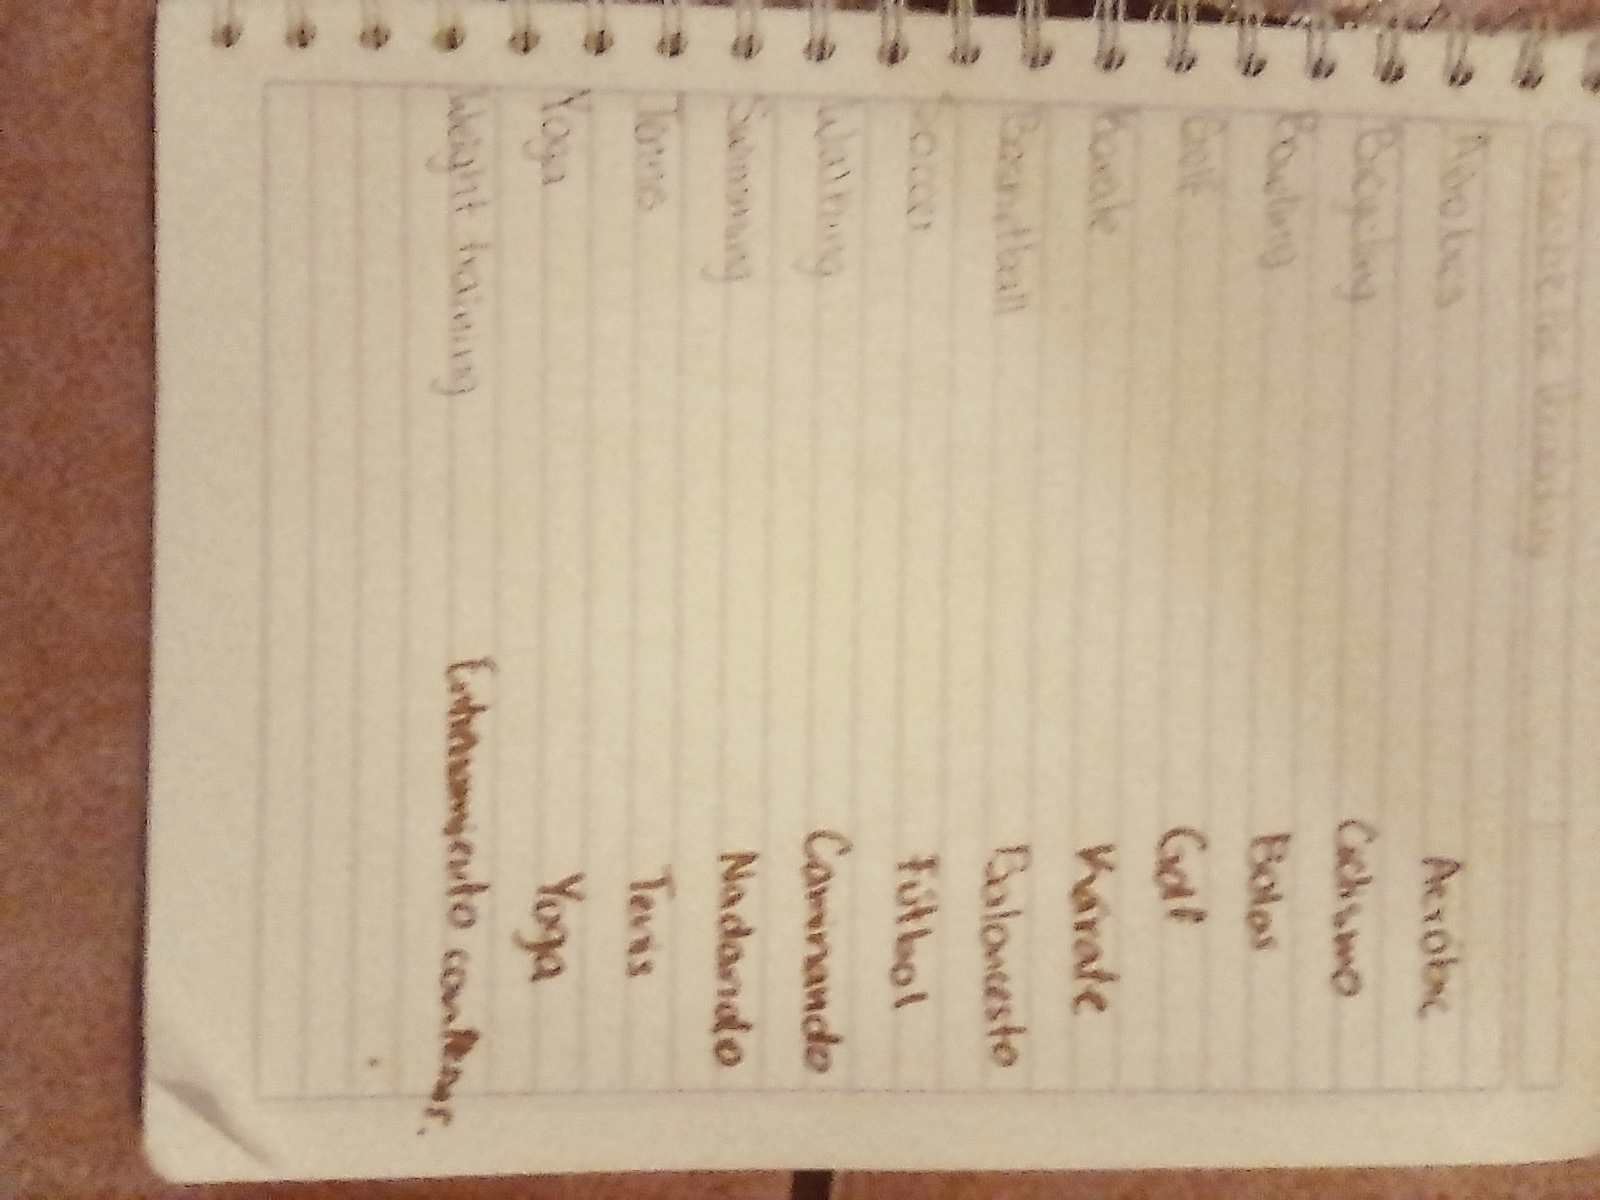 Translate the Vocabulary
Aerobics Aeróbic
Bicycling Ciclismo
Bowling Bolos
Golf Golf
Karate Kárate
Basketball Baloncesto
Soccer Fútbol
Walking Caminando
Swimming Nadando
Tennis Tenis
Yoga Yoga
Weight training Entrenamiento con pesas.